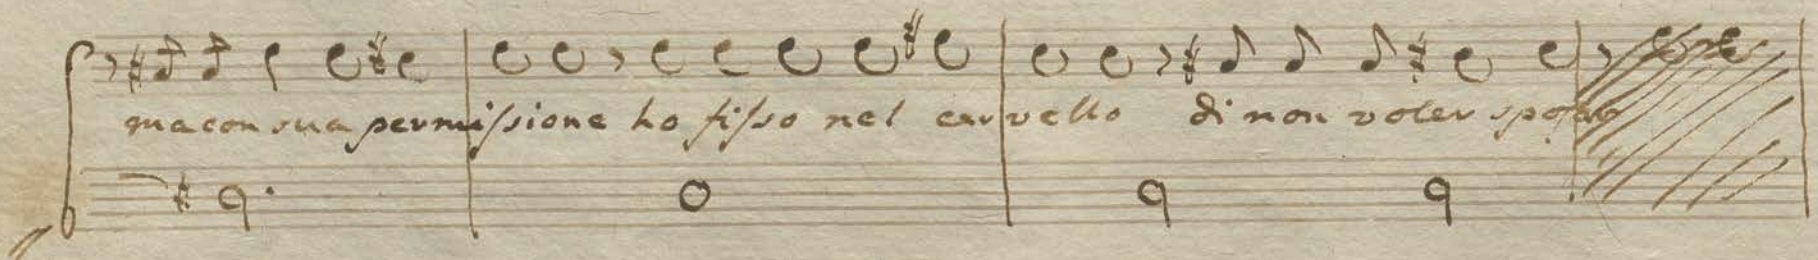 ma con sua permiſsione ho fiſso nel cervello di non voler spoſar